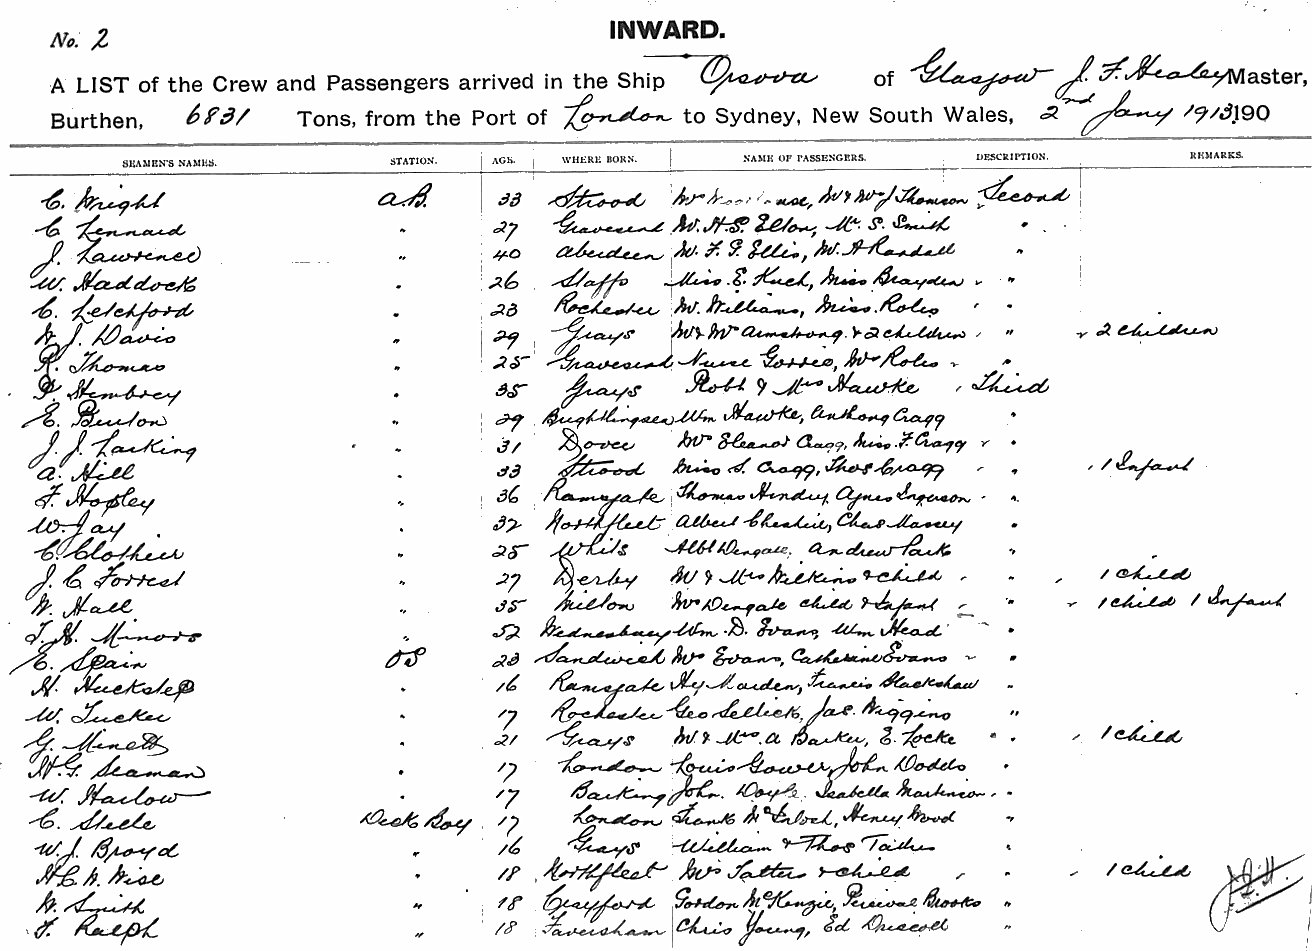 No. 2
INWARD.
A LIST of the Crew and Passengers arrived in the Ship Orsova of Glasgow J. F. Healey Master,
Burthen, 6831 Tons, from the Port of London to Sydney, New South Wales, 2nd Jany 1913 190
SEAMEN'S NAMES. STATION. AGE. WHERE BORN. NAME OF PASSENGERS. DESCRIPTION. REMARKS.
C. Wright A.B. 33 Strood Mr & Mrs J Thomson Second
C Lennard " 27 Gravesend Mr. H.S. Elton, Mr. S. Smith "
J. Lawrence " 40 Aberdeen Mr. F. G. Ellis, Mr. A Randall "
W. Haddock " 26 Staffs Miss. E. Kuch, Miss Brayden "
C. Letchford " 23 Rochester Mr. Williams, Miss. Roles "
W. J. Davis " 29 Grays Mr & Mrs Armstrong & 2 children " 2 children
R. Thomas " 25 Gravesend Nurse Gorrie, Mrs Roles "
P. Hembrey " 35 Grays Robt & Mrs Hawke Third
E. Burton " 29 Brightlingsea Wm Hawke, Anthony Cragg "
J. J. Larking " 31 Dover Mrs Eleanor Cragg, Miss. F. Cragg "
A. Hill " 33 Strood Miss S. Cragg, Thos Cragg " 1 Infant
F. Hopley " 36 Ramsgate Thomas Hendry, Agnes Ingerson "
W. Jay " 32 Northfleet Albert Cheshire, Chas Massey "
C. Clothier " 25 Whits Albt Dengate, Andrew Park "
J. C Forrest " 27 Derby Mr & Mrs Wilkins & child " 1 child
W. Hall " 35 Milton Mrs Dengate child & Infant " 1 child 1 Infant
T. H. Minors " 52 Wednesbury Wm. D. Evans, Wm Head "
E. Spain OS 23 Sandwich Mrs Evans, Catherine Evans "
H. Huckstep " 16 Ramsgate Hy Marden, Francis Blackshaw "
W. Tucker " 17 Rochester Geo Sellick, Jas. Wiggins "
G. Minett " 21 Grays Mr & Mrs. A Barker, E. Locke " 1 child
H. G. Seaman " 17 London Louis Gower, John Dodds "
W. Harlow " 17 Barking John. Doyle, Isabella Martinson "
C. Steele Deck Boy 17 London Frank McInloch, Henry Wood "
W. J. Broyd " 16 Grays William & Thos Taither "
H C. W. Wise " 18 Northfleet Mrs Tatters & child " 1 child
W. Smith " 18 Crayford Gordon McKenzie, Percival Brooks "
F. Ralph " 18 Faversham Chris Young, Ed Driscoll "
J.F.H.